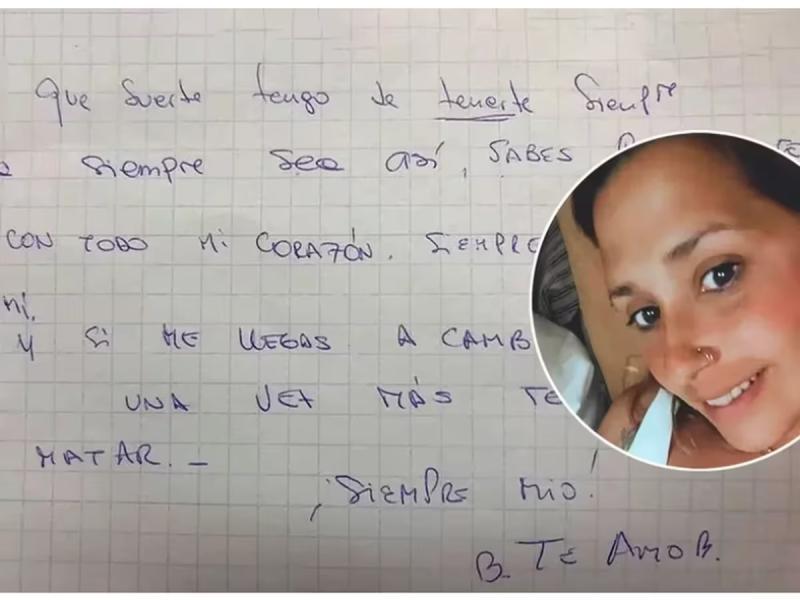 Que Suerte tengo de tenerte Siempre
Siempre Sea así, SABES
CON TODO Mi CORAZÓN. SIEMPRE
mí.
Y Si ME LLEGAS A CAMB
UNA VEZ MÁS TE
MATAR. _
¡SIEMPRE MIO!
B. TE AMO B.